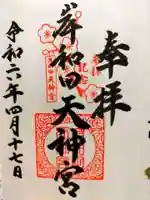 奉拝
岸和田天神宮
令和六年四月十七日